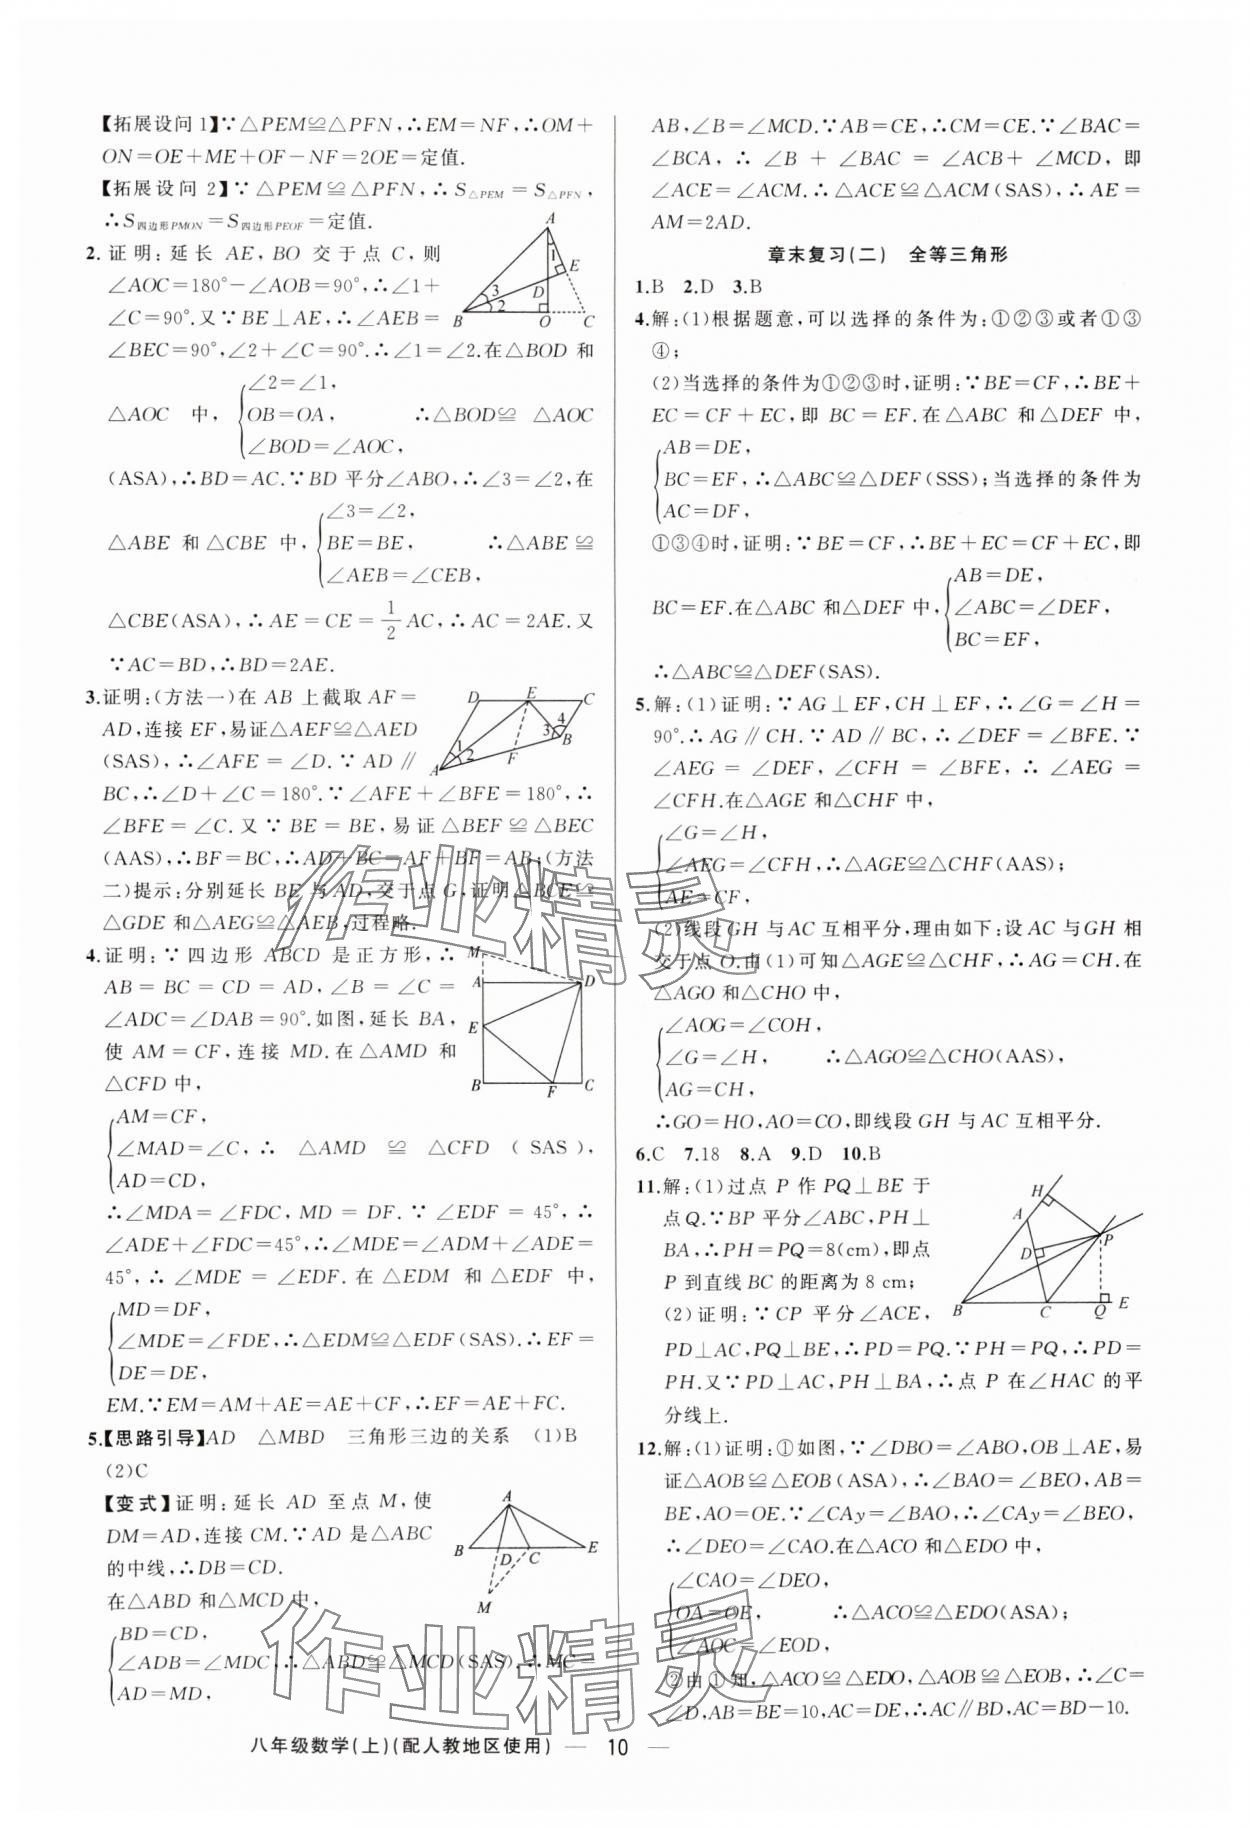 【拓展设问1】∵△PEM≌△PFN,∴EM=NF,∴OM+
ON=OE+ME+OF-NF=2OE=定值.
【拓展设问 2】∵△PEM≌△PFN,∴S△PEM=S△PFN,
∴S四边形PMON=S四边形PEOF=定值.
2. 证明:延长 AE,BO 交于点 C,则
∠AOC=180°-∠AOB=90°,∴∠1+
∠C=90°.又∵BE⊥AE,∴∠AEB=
∠BEC=90°,∠2+∠C=90°.∴∠1=∠2.在△BOD 和
△AOC 中,{∠2=∠1, OB=OA, ∠BOD=∠AOC, ∴△BOD≌△AOC
(ASA),∴BD=AC.∵BD 平分∠ABO,∴∠3=∠2,在
△ABE 和△CBE 中,{∠3=∠2, BE=BE, ∠AEB=∠CEB, ∴△ABE≌
△CBE(ASA),∴AE=CE=1/2 AC,∴AC=2AE.又
∵AC=BD,∴BD=2AE.
A 1 E D 3 2 B O C
3.证明:(方法一)在 AB 上截取 AF=
AD,连接 EF,易证△AEF≌△AED
(SAS),∴∠AFE=∠D.∵AD∥
BC,∴∠D+∠C=180°.∵∠AFE+∠BFE=180°,∴
∠BFE=∠C.又∵BE=BE,易证△BEF≌△BEC
(AAS),∴BF=BC,∴AD+BC=AF+BF=AB;(方法
二)提示:分别延长 BE 与 AD,交于点 G,证明△BCE≌
△GDE 和△AEG≌△AEB,过程略.
D E C 4 3 B 1 2 F A
4.证明:∵四边形 ABCD 是正方形,∴
AB=BC=CD=AD,∠B=∠C=
∠ADC=∠DAB=90°.如图,延长 BA,
使 AM=CF,连接 MD.在△AMD 和
△CFD 中,
{AM=CF,
∠MAD=∠C,∴△AMD≌△CFD(SAS),
AD=CD,
∴∠MDA=∠FDC,MD=DF.∵∠EDF=45°,∴
∠ADE+∠FDC=45°,∴∠MDE=∠ADM+∠ADE=
45°,∴∠MDE=∠EDF.在△EDM 和△EDF 中,
{MD=DF,
∠MDE=∠FDE,∴△EDM≌△EDF(SAS).∴EF=
DE=DE,
EM.∵EM=AM+AE=AE+CF,∴EF=AE+FC.
M A D E B F C
5.【思路引导】AD △MBD 三角形三边的关系 (1)B
(2)C
【变式】证明:延长 AD 至点 M,使
DM=AD,连接 CM.∵AD 是△ABC
的中线,∴DB=CD.
在△ABD 和△MCD 中,
{BD=CD,
∠ADB=∠MDC,∴△ABD≌△MCD(SAS),∴MC=
AD=MD,
A B D C E M
AB,∠B=∠MCD.∵AB=CE,∴CM=CE.∵∠BAC=
∠BCA,∴∠B+∠BAC=∠ACB+∠MCD,即
∠ACE=∠ACM.∴△ACE≌△ACM(SAS),∴AE=
AM=2AD.
章末复习(二) 全等三角形
1.B 2.D 3.B
4.解:(1)根据题意,可以选择的条件为:①②③或者①③
④;
(2)当选择的条件为①②③时,证明:∵BE=CF,∴BE+
EC=CF+EC,即 BC=EF.在△ABC 和△DEF 中,
{AB=DE,
BC=EF,∴△ABC≌△DEF(SSS);当选择的条件为
AC=DF,
①③④时,证明:∵BE=CF,∴BE+EC=CF+EC,即
BC=EF.在△ABC 和△DEF 中,{AB=DE, ∠ABC=∠DEF, BC=EF,
∴△ABC≌△DEF(SAS).
5.解:(1)证明:∵AG⊥EF,CH⊥EF,∴∠G=∠H=
90°.∴AG∥CH.∵AD∥BC,∴∠DEF=∠BFE.∵
∠AEG=∠DEF,∠CFH=∠BFE,∴∠AEG=
∠CFH.在△AGE 和△CHF 中,
{∠G=∠H,
∠AEG=∠CFH,∴△AGE≌△CHF(AAS);
AE=CF,
(2)线段GH 与AC 互相平分,理由如下:设 AC 与GH 相
交于点 O.由(1)可知△AGE≌△CHF,∴AG=CH.在
△AGO 和△CHO 中,
{∠AOG=∠COH,
∠G=∠H, ∴△AGO≌△CHO(AAS),
AG=CH,
∴GO=HO,AO=CO,即线段 GH 与 AC 互相平分.
6.C 7.18 8.A 9.D 10.B
11.解:(1)过点 P 作 PQ⊥BE 于
点Q.∵BP平分∠ABC,PH⊥
BA,∴PH=PQ=8(cm),即点
P 到直线 BC 的距离为 8 cm;
(2)证明:∵CP 平分∠ACE,
PD⊥AC,PQ⊥BE,∴PD=PQ.∵PH=PQ,∴PD=
PH.又∵PD⊥AC,PH⊥BA,∴点 P 在∠HAC 的平
分线上.
H A P D B C Q E
12.解:(1)证明:①如图,∵∠DBO=∠ABO,OB⊥AE,易
证△AOB≌△EOB(ASA),∴∠BAO=∠BEO,AB=
BE,AO=OE.∵∠CAy=∠BAO,∴∠CAy=∠BEO,
∴∠DEO=∠CAO.在△ACO 和△EDO 中,
{∠CAO=∠DEO,
OA=OE, ∴△ACO≌△EDO(ASA);
∠AOC=∠EOD,
②由①知,△ACO≌△EDO,△AOB≌△EOB,∴∠C=
∠D,AB=BE=10,AC=DE,∴AC∥BD,AC=BD-10.
作业精灵
作业精灵
八年级数学(上)(配人教地区使用) — 10 —